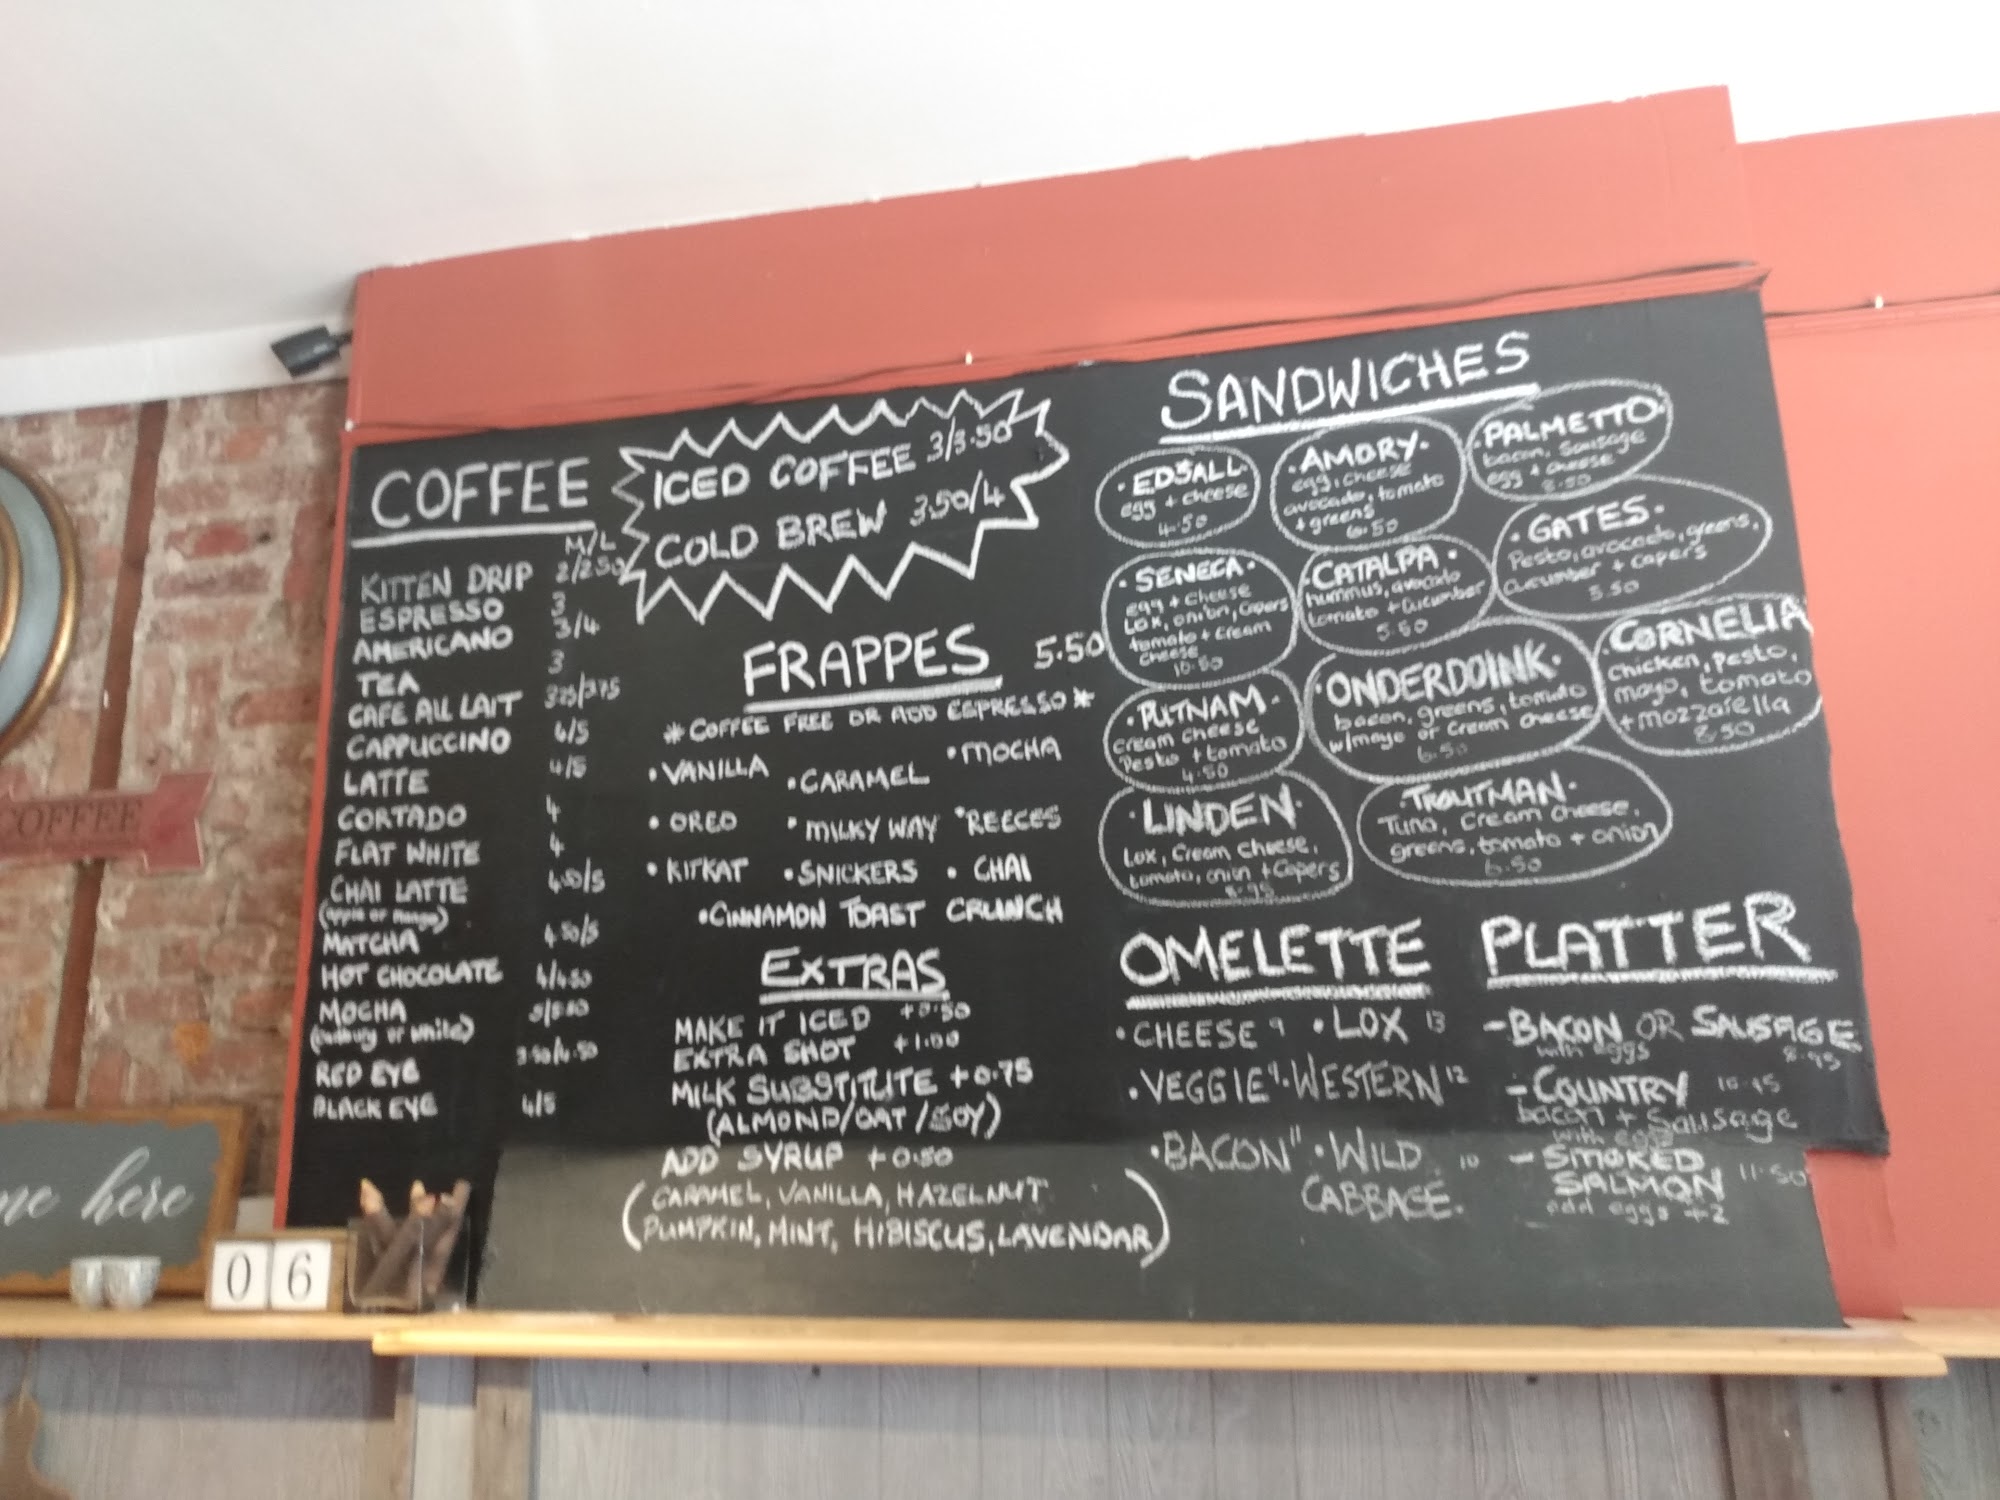 COFFEE
M/L
KITTEN DRIP 2/2.50
ESPRESSO 3
AMERICANO 3/4
TEA 3
CAFE AU LAIT 3.25/3.75
CAPPUCCINO 4/5
LATTE 4/5
CORTADO 4
FLAT WHITE 4
CHAI LATTE 4.50/5
(apple or mango)
MATCHA 4.50/5
HOT CHOCOLATE 4/4.50
MOCHA 5/5.50
or white)
RED EYE 3.50/4.50
BLACK EYE 4/5
ICED COFFEE 3/3.50
COLD BREW 3.50/4
FRAPPES 5.50
*COFFEE FREE OR ADD ESPRESSO*
•VANILLA •CARAMEL •MOCHA
•OREO •MILKY WAY •REECES
•KITKAT •SNICKERS •CHAI
•CINNAMON TOAST CRUNCH
EXTRAS
MAKE IT ICED +0.50
EXTRA SHOT +1.00
MILK SUBSTITUTE +0.75
(ALMOND/OAT/SOY)
ADD SYRUP +0.50
(CARAMEL, VANILLA, HAZELNUT
PUMPKIN, MINT, HIBISCUS, LAVENDAR)
SANDWICHES
•EDSALL•
egg + cheese
4.50
•AMORY•
egg, cheese
avocado, tomato
+ greens
6.50
PALMETTO•
bacon, Sausage
egg + cheese
8.50
•SENECA•
egg + cheese
Lox, onion, Capers
tomato + cream
cheese
10.50
CATALPA•
hummus, avocado
tomato + cucumber
5.50
•GATES•
Pesto, avocado, greens,
Cucumber + capers
5.50
•PUTNAM•
cream cheese
Pesto + tomato
4.50
•ONDERDOINK•
bacon, greens, tomato
w/mayo or cream cheese
6.50
CORNELIA
chicken, Pesto,
mayo, tomato
+ mozzarella
8.50
•LINDEN•
Lox, Cream Cheese,
tomato, onion + Capers
8.95
•TROUTMAN•
Tuna, Cream cheese,
greens, tomato + onion
6.50
OMELETTE
•CHEESE 9 •LOX 13
•VEGGIE 9 •WESTERN 12
•BACON 11 •WILD 10
CABBAGE.
PLATTER
-BACON OR SAUSAGE
with eggs 8.95
-COUNTRY 10.95
bacon + Sausage
with eggs
-SMOKED
SALMON 11.50
add eggs +2
COFFEE
me here
06